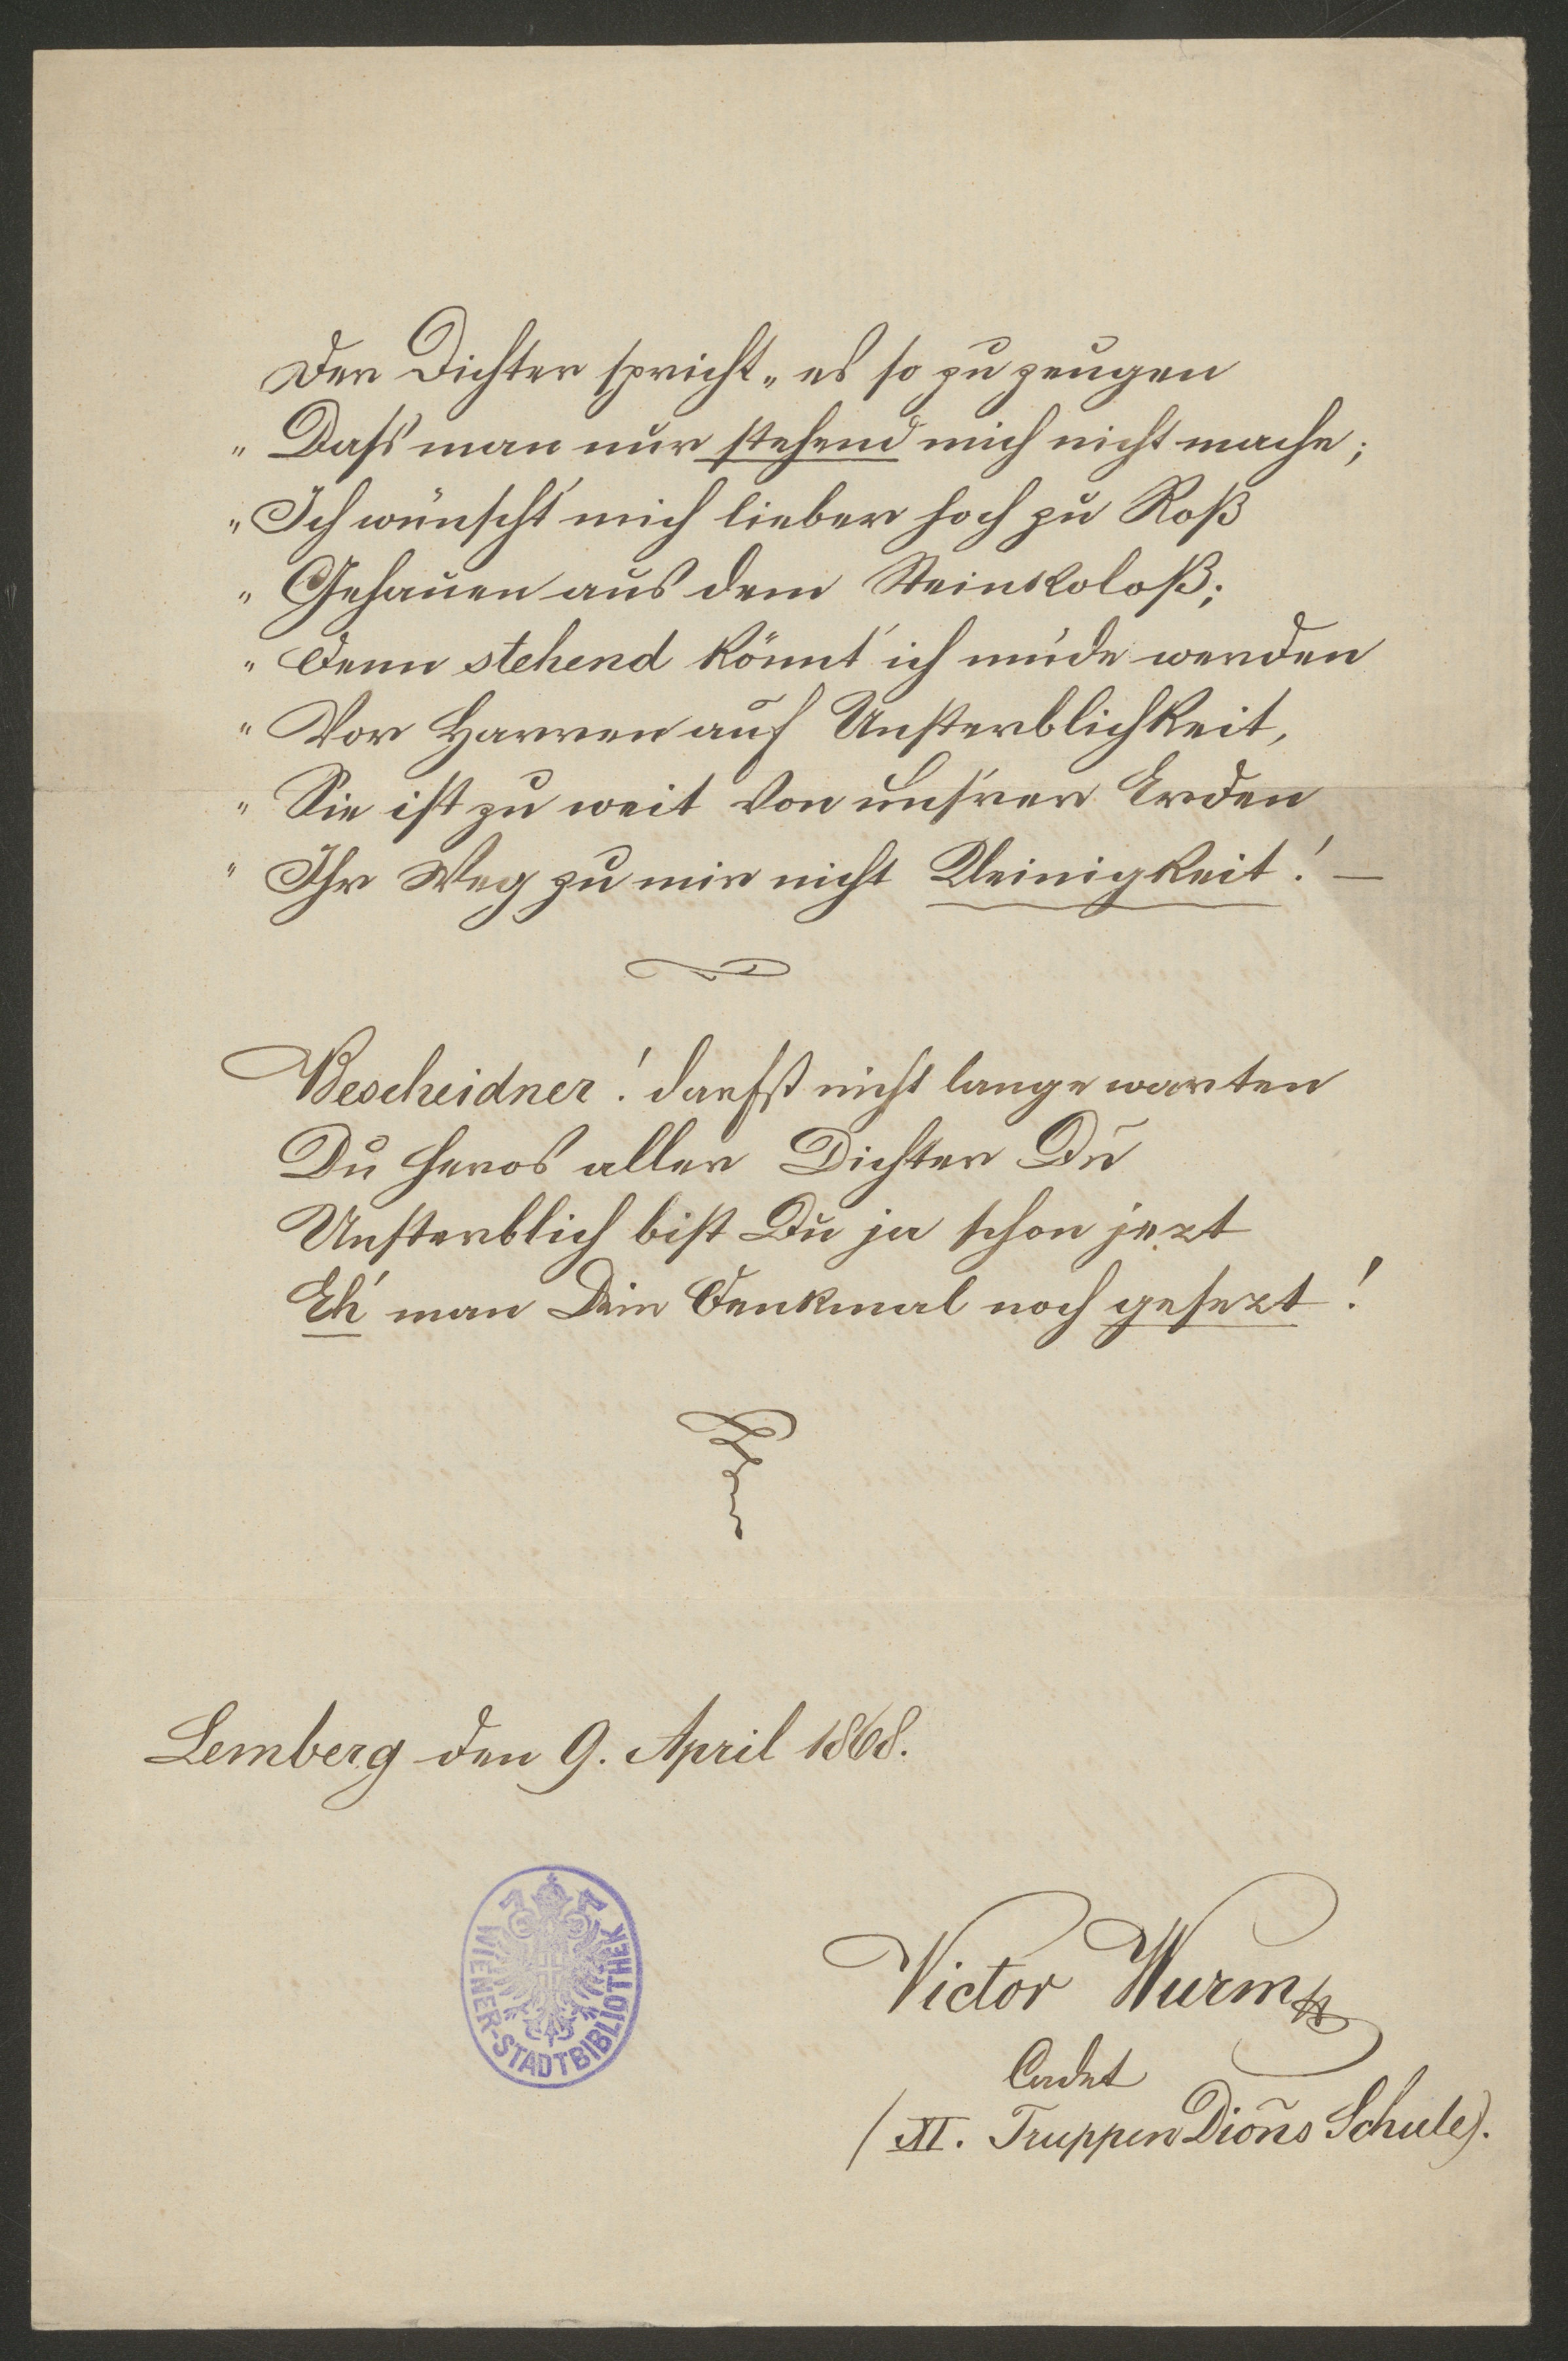 Der Dichter spricht „es so zu zeugen
„Dass man nur stehend mich nicht mache;
„Ich wünscht' mich lieber hoch zu Roß
„Gehauen aus dem Steinkoloß;
„Denn stehend könnt' ich müde werden
„Vor Harren auf Unsterblichkeit,
„Sie ist zu weit von uns'rer Erden
„Ihr Weg zu mir nicht Kleinigkeit! —
Bescheidner! darfst nicht lange warten
Du Heros aller Dichter Du
Unsterblich bist Du ja schon jezt
Eh' man Dein Denkmal noch gesezt!
Lemberg den 9. April 1868.
WIENER-STADTBIBLIOTHEK
Victor Wurm
Cadet
(XI. Truppen Dions̃ Schule).